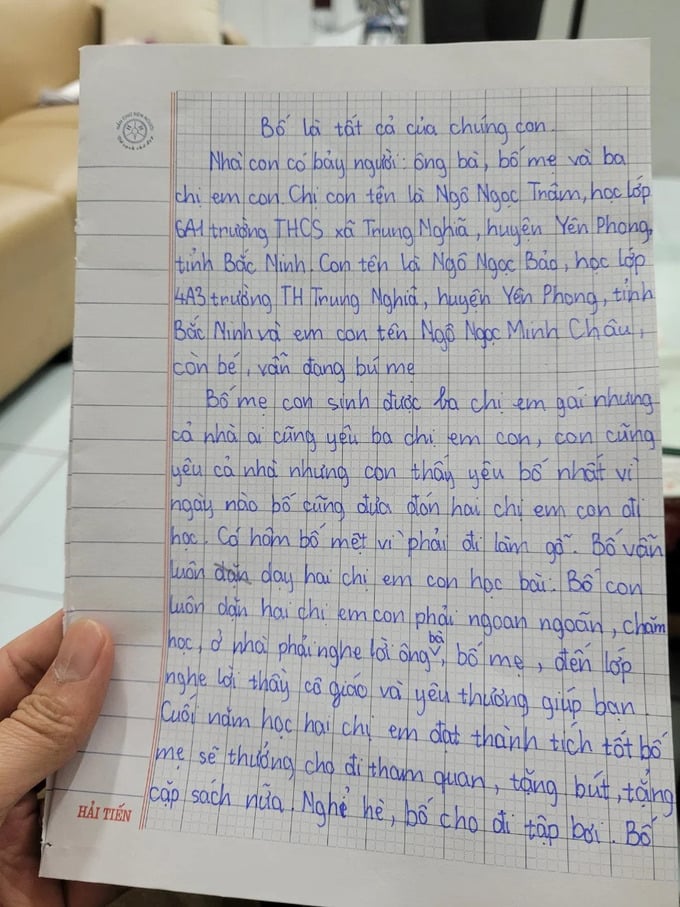 Bố là tất cả của chúng con.
Nhà con có bảy người: ông bà, bố mẹ và ba
chị em con. Chị con tên là Ngô Ngọc Trâm, học lớp
6A1 trường THCS xã Trung Nghĩa, huyện Yên Phong,
tỉnh Bắc Ninh. Con tên là Ngô Ngọc Bảo, học lớp
4A3 trường TH Trung Nghĩa, huyện Yên Phong, tỉnh
Bắc Ninh và em con tên Ngô Ngọc Minh Châu,
còn bé, vẫn đang bú mẹ
Bố mẹ con sinh được ba chị em gái nhưng
cả nhà ai cũng yêu ba chị em con, con cũng
yêu cả nhà nhưng con thấy yêu bố nhất vì
ngày nào bố cũng đưa đón hai chị em con đi
học. Có hôm bố mệt vì phải đi làm gỗ. Bố vẫn
luôn dạy hai chị em con học bài. Bố con
luôn dặn hai chị em con phải ngoan ngoãn, chăm
học, ở nhà phải nghe lời ông bà, bố mẹ, đến lớp
nghe lời thầy cô giáo và yêu thương giúp bạn.
Cuối năm học hai chị em đạt thành tích tốt bố
mẹ sẽ thưởng cho đi tham quan, tặng bút, tặng
cặp sách nữa. Nghẻ hè, bố cho đi tập bơi. Bố
HẢI TIẾN